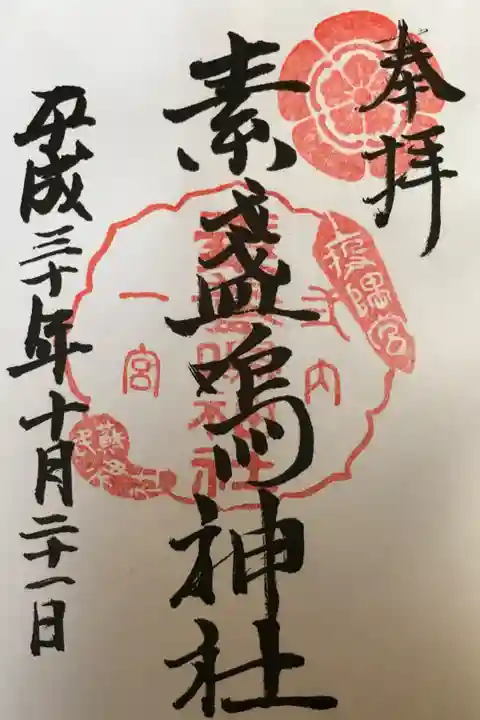 奉拝
疫隅宮
素盞嗚神社
素盞嗚神社
式内
一宮
平成三十年十月二十一日